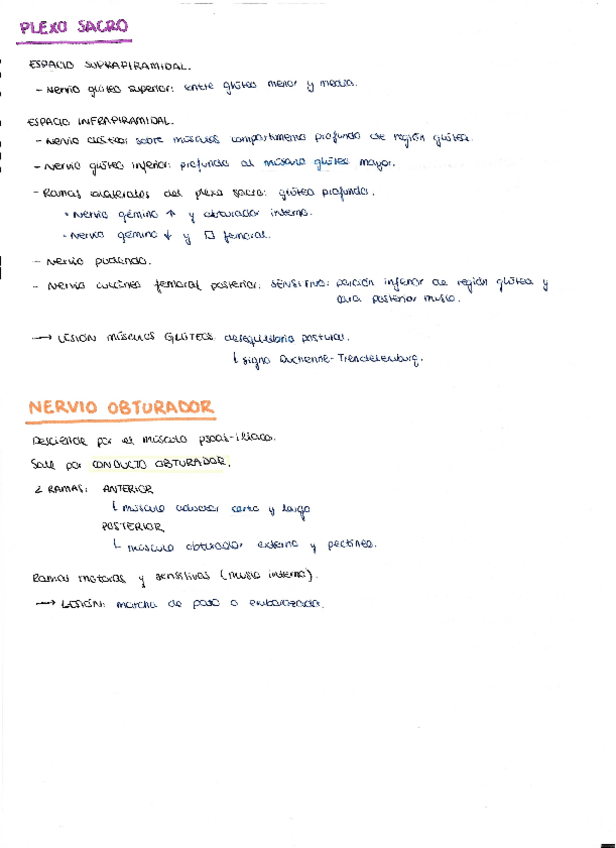 PLEXO SACRO
ESPACIO SUPRAPIRAMIDAL.
- Nervio glúteo superior: entre glúteo menor y medio.
ESPACIO INFRAPIRAMIDAL.
- Nervio ciático: sobre músculos compartimento profundo de región glútea.
- Nervio glúteo inferior: profundo al músculo glúteo mayor.
- Ramas colaterales del plexo sacro: glútea profunda.
• Nervio gémino ↑ y obturador interno.
• Nervio gémino ↓ y □ femoral.
- Nervio pudendo.
- Nervio cutáneo femoral posterior: SENSITIVO: porción inferior de región glútea y
cara posterior muslo.
→ LESIÓN MÚSCULOS GLÚTEOS desequilibrio postural.
↳ signo Duchenne-Trendelenburg.
NERVIO OBTURADOR
Desciende por el músculo psoas-ilíaco.
Sale por CONDUCTO OBTURADOR.
2 RAMAS: ANTERIOR
↳ músculo aductor corto y largo
POSTERIOR
↳ músculo obturador externo y pectíneo.
Ramas motoras y sensitivas (muslo interno).
→ LESIÓN: marcha de pato o embarazada.